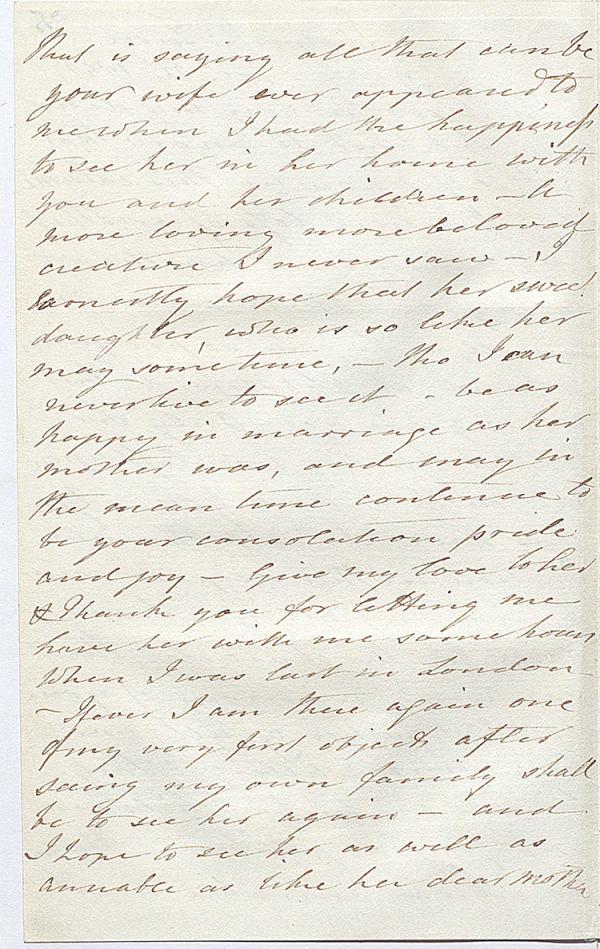 that is saying all that can be
your wife ever appeared to
me when I had the happiness
to see her in her home with
you and her children – A
more loving more beloved
creature I never saw – I
earnestly hope that her sweet
daughter, who is so like her
may sometime, – tho I can
never live to see it – be as
happy in marriage as her
mother was, and may in
the mean time continue to
be your consolation pride
and joy – Give my love to her
& thank you for letting me
have her with me some hours
when I was last in London
– If ever I am there again one
of my very first objects after
seeing my own family shall
be to see her again – and
I hope to see her as well as
amiable as like her dear mother